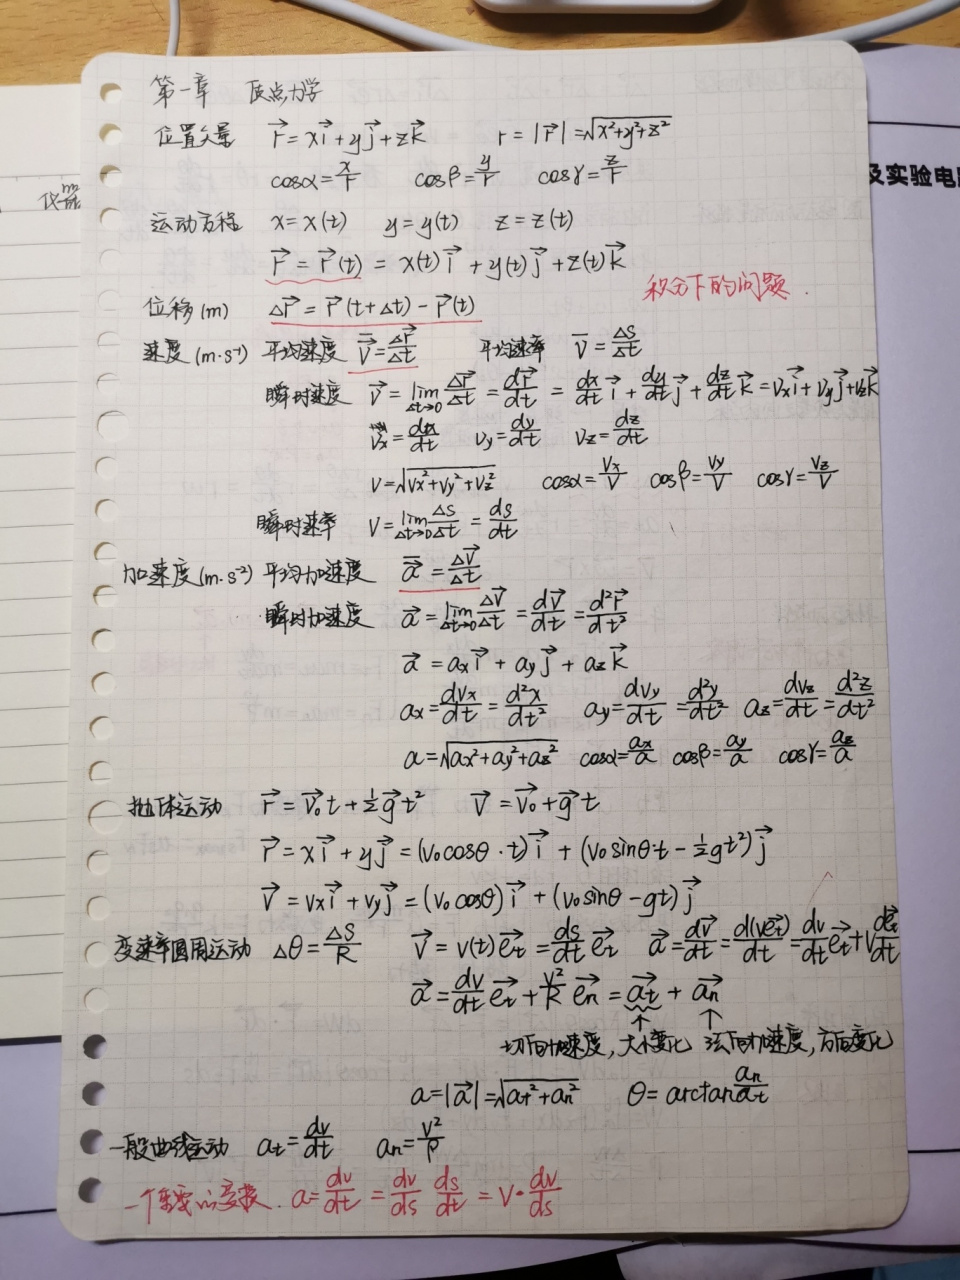 第一章 质点力学
位置矢量 r⃗ = xi⃗ + yj⃗ + zk⃗ r = |r⃗| = √(x²+y²+z²)
cosα = x/r cosβ = y/r cosγ = z/r
及实验电
仪器
运动方程 x = x(t) y = y(t) z = z(t)
r⃗ = r⃗(t) = x(t)i⃗ + y(t)j⃗ + z(t)k⃗
积分下的问题.
位移(m) Δr⃗ = r⃗(t+Δt) - r⃗(t)
速度(m·s⁻¹) 平均速度 v̄⃗ = Δr⃗/Δt 平均速率 v̄ = Δs/Δt
瞬时速度 v⃗ = lim Δt→0 Δr⃗/Δt = dr⃗/dt = dx/dt i⃗ + dy/dt j⃗ + dz/dt k⃗ = vxi⃗ + vyj⃗ + vzk⃗
vx = dx/dt vy = dy/dt vz = dz/dt
v = √(vx²+vy²+vz²) cosα = vx/v cosβ = vy/v cosγ = vz/v
瞬时速率 v = lim Δt→0 Δs/Δt = ds/dt
加速度(m·s⁻²) 平均加速度 ā⃗ = Δv⃗/Δt
瞬时加速度 a⃗ = lim Δt→0 Δv⃗/Δt = dv⃗/dt = d²r⃗/dt²
a⃗ = axi⃗ + ayj⃗ + azk⃗
ax = dvx/dt = d²x/dt² ay = dvy/dt = d²y/dt² az = dvz/dt = d²z/dt²
a = √(ax²+ay²+az²) cosα = ax/a cosβ = ay/a cosγ = az/a
抛体运动 r⃗ = v⃗₀t + ½g⃗t² v⃗ = v⃗₀ + g⃗t
r⃗ = xi⃗ + yj⃗ = (v₀cosθ·t)i⃗ + (v₀sinθ·t - ½gt²)j⃗
v⃗ = vxi⃗ + vyj⃗ = (v₀cosθ)i⃗ + (v₀sinθ - gt)j⃗
变速率圆周运动 Δθ = Δs/R v⃗ = v(t)e⃗t = ds/dt e⃗t a⃗ = dv⃗/dt = d(ve⃗t)/dt = dv/dt e⃗t + v de⃗t/dt
a⃗ = dv/dt e⃗t + v²/R e⃗n = a⃗t + a⃗n
切向加速度,大小变化 法向加速度,方向变化
a = |a⃗| = √(at²+an²) θ = arctan an/at
一般曲线运动 at = dv/dt an = v²/ρ
一个重要的变换. a = dv/dt = dv/ds ds/dt = v·dv/ds